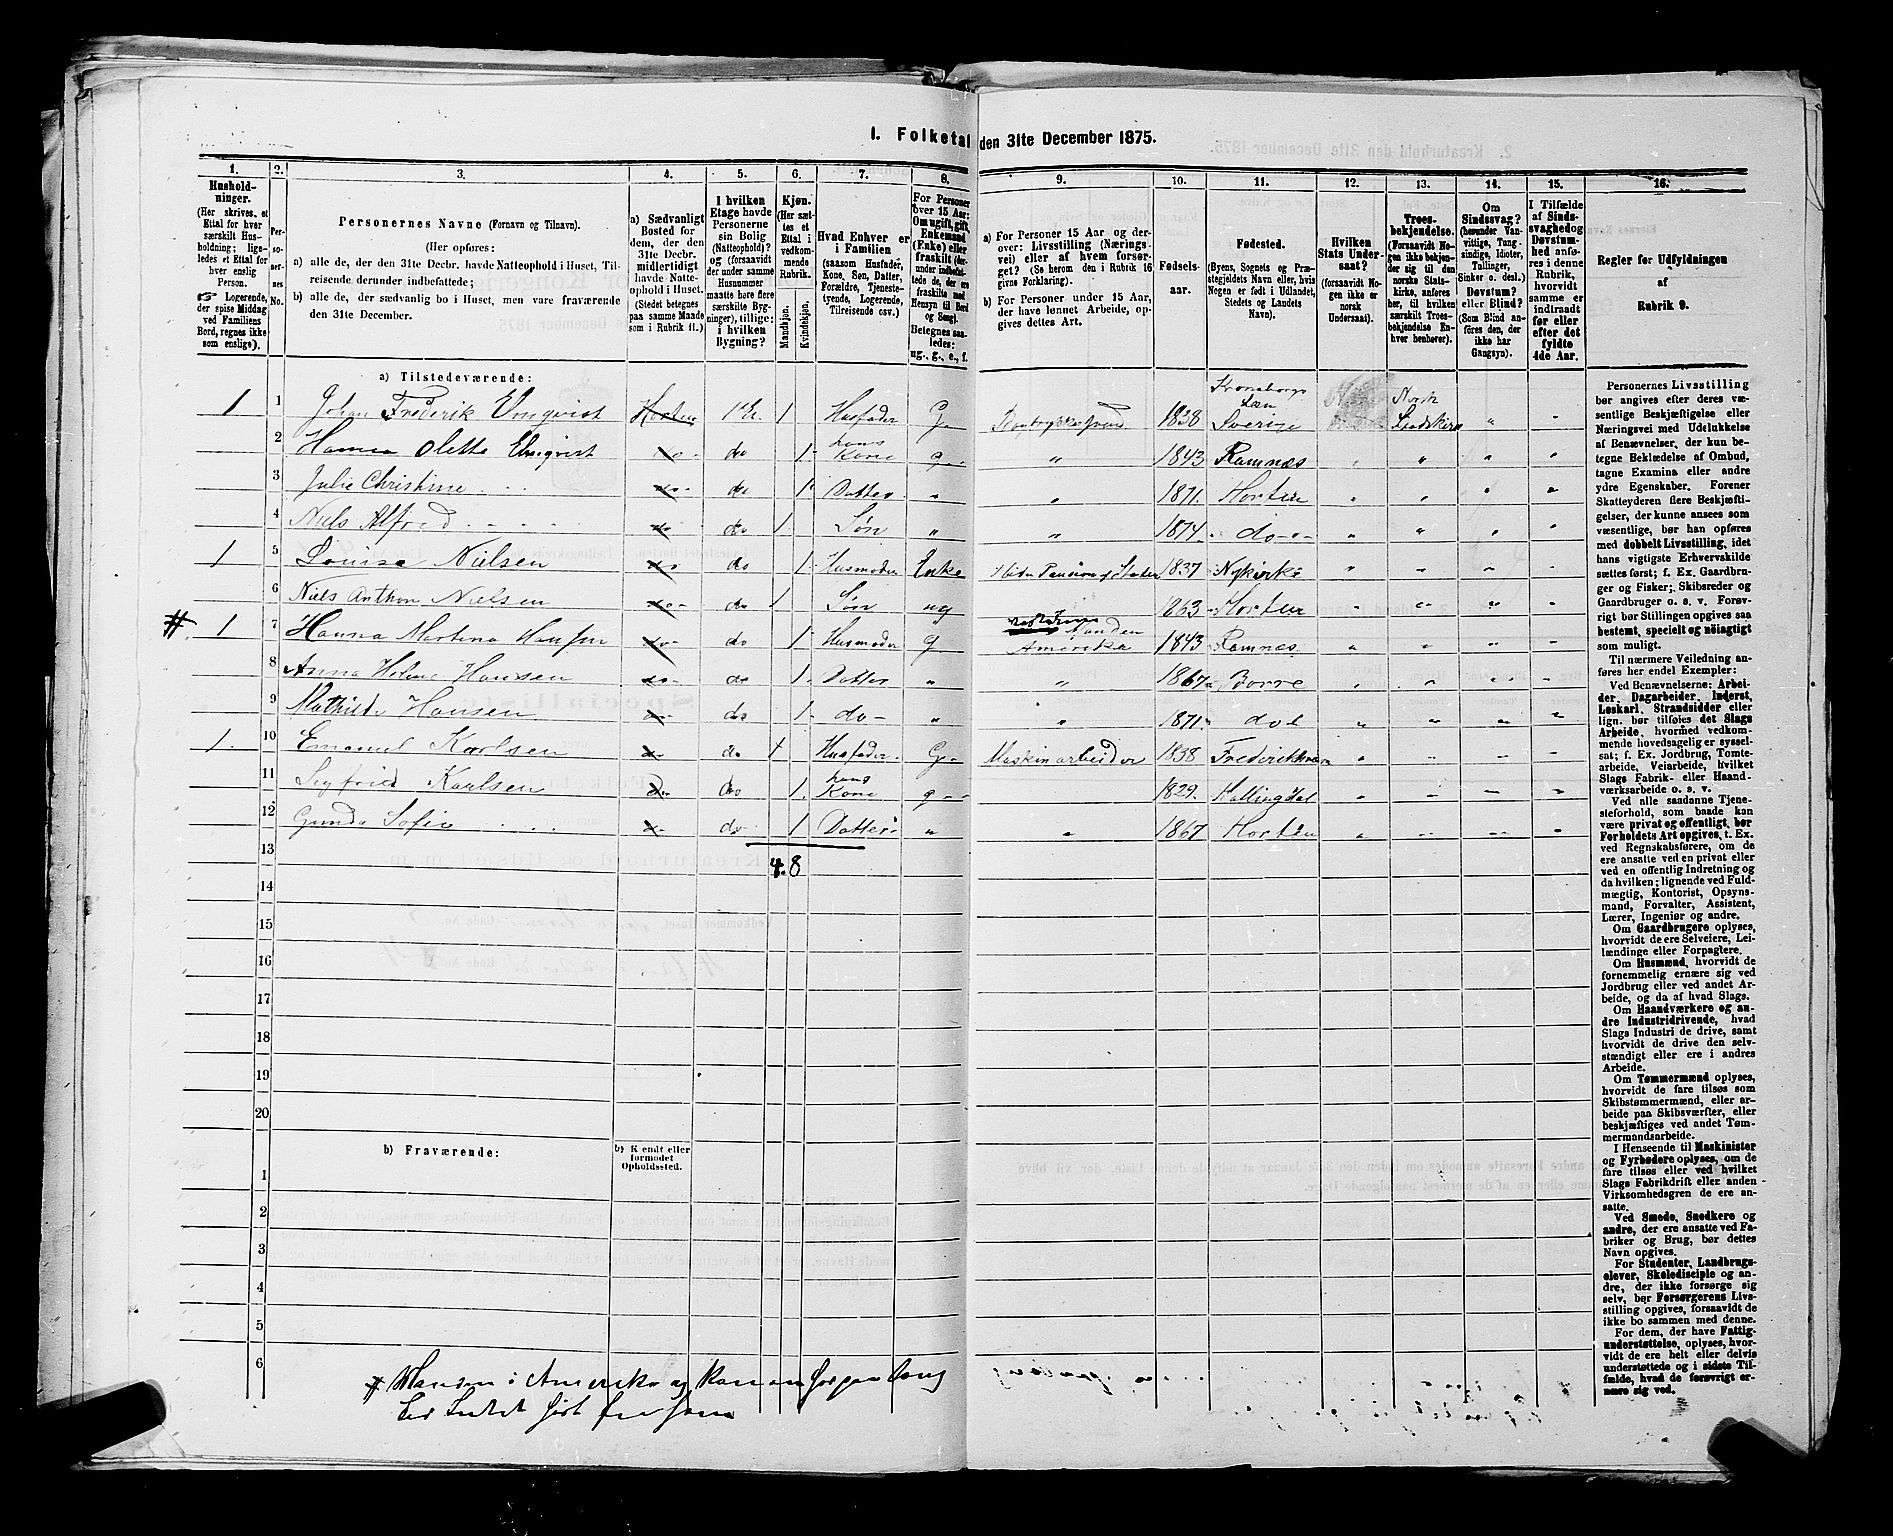 1. Folketal den 31te December 1875.
1. 2. 3. 4. 5. 6. 7. 8. 9. 10. 11. 12. 13. 14. 15. 16.
Hushold-
ninger.
(Her skrives, et
Ettal for hver
særskilt Hus-
holdning; lige-
ledes et Ettal for
hver enslig
Person.
☞ Logerende,
der spise Middag
ved Familiens
Bord, regnes ikke
som enslige).
Per-
so-
ner-
nes
No.
Personernes Navne (Fornavn og Tilnavn).
(Her opføres:
a) alle de, der den 31te Decbr. havde Natteophold i Huset, Til-
reisende derunder indbefattede;
b) alle de, der sædvanlig bo i Huset, men vare fraværende
den 31te December.
a) Sædvanligt
Bosted for
dem, der den
31te Decbr.
midlertidigt
havde Natte-
ophold i Huset.
(Stedet betegnes
paa samme Maade
som i Rubrik 11.)
I hvilken
Etage havde
Personerne
sin Bolig
(Natteophold)?
og (forsaavidt
der under samme
Husnummer
maatte høre flere
særskilte Byg-
ninger), tillige:
i hvilken
Bygning?
Kjøn.
(Her sæt-
tes et
Ettal i
vedkom-
mende
Rubrik.
Mandkjøn.
Kvindekjøn.
Hvad Enhver er
i Familien
(saasom Husfader,
Kone, Søn, Datter,
Forældre, Tjeneste-
tyende, Logerende,
Tilreisende osv.)
For Personer
over 15 Aar:
Om ugift, gift,
Enkemand
(Enke) eller
fraskilt (der-
under indbefat-
tede de, der ere
fraskilte med
Hensyn til Bord
og Seng).
Betegnes saa-
ledes:
ug., g., e., f.
a) For Personer 15 Aar og der-
over: Livsstilling (Nærings-
vei) eller af hvem forsør-
get? (Se herom den i Rubrik 16
givne Forklaring).
b) For Personer under 15 Aar,
der have lønnet Arbeide, op-
gives dettes Art.
Fødsels-
aar.
Fødested.
(Byens, Sognets og Præ-
stegjeldets Navn eller, hvis
Nogen er født i Udlandet,
Stedets og Landets
Navn).
Hvilken
Stats Under-
saat?
(forsaavidt No-
gen ikke er
norsk
Undersaat).
Troes-
bekjendelse.
(Forsaavidt No-
gen ikke bekjen-
der sig til den
norske Stats-
kirke, anføres
her, til hvilken
særskilt Troes-
bekjendelse En-
hver henhører).
Om
Sindssvag?
(herunder Van-
vittige, Tung-
sindige, Idioter,
Tullinger,
Sinker o. desl.)
Døvstum?
eller Blind?
(Som Blind an-
føres den, der
ikke har
Gangsyn).
I Tilfælde
af Sinds-
svaghed og
Døvstum-
hed anfø-
res i denne
Rubrik,
hvorvidt
samme er
indtraadt
før eller
efter det
fyldte
4de Aar.
Regler for Udfyldningen
af
Rubrik 9.
a) Tilstedeværende:
1 1 Johan Frederik Elmqvist Horten 1 Husfader G 1838 Kronobergs Læn Sverige Norsk "
2 Hanna Olette Elmqvist do do 1 hans Kone g " 1843 Ramnæs " " " "
3 Julie Christine do do 1 Datter " " 1871 Horten " " " "
4 Niels Alfred do do 1 Søn " " 1874 do " " " "
1 5 Lovisa Nielsen do do 1 Husmoder Enke Pension af Staten 1837 Nykirke " " " "
6 Niels Anthon Nielsen do do 1 Søn ug 1863 Horten " " " "
# 1 7 Hanna Martina Hansen do do 1 Husmoder g Manden Amerika 1843 Ramnæs " " " "
8 Anna Helene Hansen do do 1 Datter " " 1867 Borre " " " "
9 Mathilde Hansen do do 1 do " " 1871 do " " " "
1 10 Emanuel Karlsen do do 1 Husfader G Maskinarbeider 1838 Frederiksværn " " " "
11 Karlsen do do 1 hans Kone g 1829 Hallingdal " " " "
12 Gunda Sofie do do 1 Datter " " 1867 Horten " " " "
13 4 8
14
15
16
17
18
19
20
b) Fraværende:
b) Kjendt eller
formodet
Opholdssted.
1
2
3
4
5
6
# Manden i Amerika og
Personernes Livsstilling
bør angives efter deres væ-
sentlige Beskjæftigelse eller
Næringsvei med Udelukkelse
af Benævnelser, der kun be-
tegne Beklædelse af Ombud,
tagne Examina eller andre
ydre Egenskaber. Forener
Skatteyderen flere Beskjæfti-
gelser, der kunne ansees som
væsentlige, bør han opføres
med dobbelt Livsstilling, idet
hans vigtigste Erhvervskilde
sættes først; f. Ex. Gaardbru-
ger og Fisker; Skibsreder og
Gaardbruger o. s. v. Forøv-
rigt bør Stillingen opgives saa
bestemt, specielt og nøiagtigt
som muligt.
Til nærmere Veiledning an-
føres her endel Exempler:
Ved Benævnelserne: Arbei-
der, Dagarbeider, Inderst,
Løskarl, Strandsidder eller
lign. bør tilføies det Slags
Arbeide, hvormed vedkom-
mende hovedsagelig er syssel-
sat; f. Ex. Jordbrug, Tomte-
arbeide, Veiarbeide, hvilket
Slags Fabrik- eller Haand-
værksarbeide o. s. v.
Ved alle saadanne Tjene-
steforhold, som baade kan
være privat og offentligt, bør
Forholdets Art opgives, t. Ex.
ved Regnskabsførere, om de
ere ansatte ved en privat eller
ved en offentlig Indretning og
da hvilken; lignende ved Fuld-
mægtig, Kontorist, Opsyns-
mand, Forvalter, Assistent,
Lærer, Ingeniør og andre.
Om Gaardbrugere oplyses,
hvorvidt de ere Selveiere, Lei-
lændinge eller Forpagtere.
Om Husmænd, hvorvidt de
fornemmelig ernære sig ved
Jordbrug eller ved andet Ar-
beide, og da af hvad Slags.
Om Haandværkere og an-
dre Industridrivende, hvad
Slags Industri de drive, samt
hvorvidt de drive den selv-
stændigt eller ere i andres
Arbeide.
Om Tømmermænd oplyses,
hvorvidt de fare tilsøs som
Skibstømmermænd, eller ar-
beide paa Skibsværfter, eller
beskjæftiges ved andet Tøm-
mermandsarbeide.
I Henseende til Maskinister
og Fyrbødere oplyses, om de
fare tilsøs eller ved hvilket
Slags Fabrikdrift eller anden
Virksomhedsgren de ere an-
satte.
Ved Smede, Snedkere og
andre, der ere ansatte ved Fa-
briker og Brug, bør dettes
Navn opgives.
For Studenter, Landbrugs-
elever, Skoledisciple og an-
dre, der ikke forsørge sig
selv, bør Forsørgerens Livs-
stilling opgives, forsaavidt de
ikke bo sammen med denne.
For dem, der have Fattig-
understøttelse, oplyses, hvor-
vidt de ere helt eller delvis
understøttede og i sidste Til-
fælde, hvad de forøvrigt er-
nære sig ved.